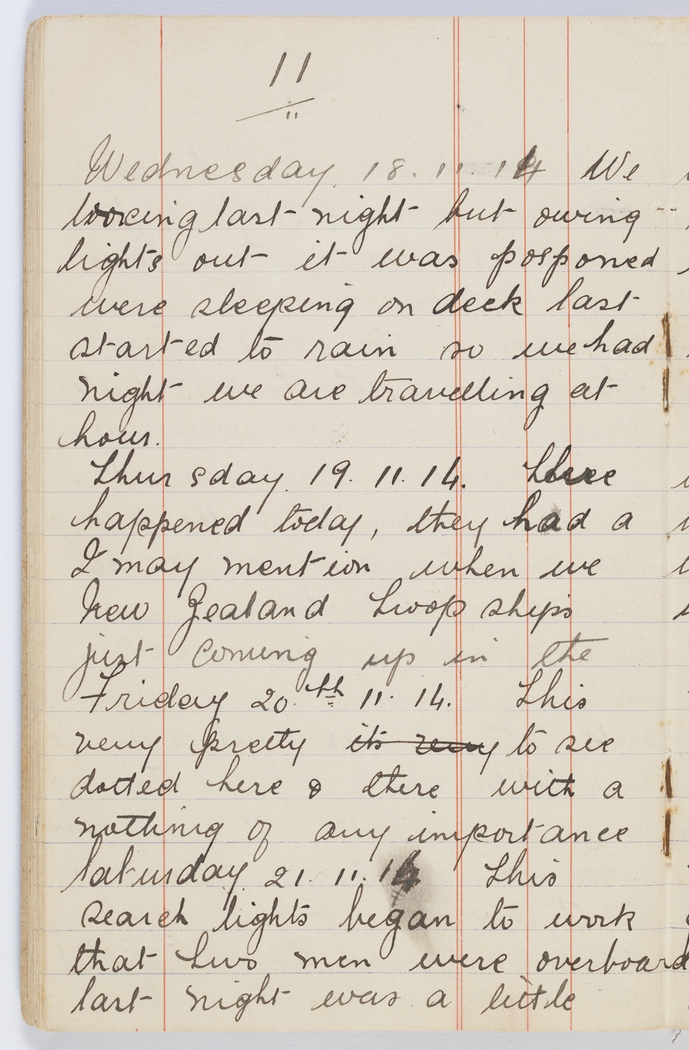 11
"
Wednesday 18. 11. 14 We
boxing last night but owing
lights out it was posponed
were sleeping on deck last
started to rain so we had
night we are travelling at
hour.
Thursday 19. 11. 14. There
happened today, they had a
I may mention when we
New Zealand troop ships
just coming up in the
Friday 20.th 11. 14. This
very pretty its very to see
dotted here & there with a
nothing of any importance
Saturday 21. 11. 14 This
search lights began to work
that two men were overboard
last night was a little